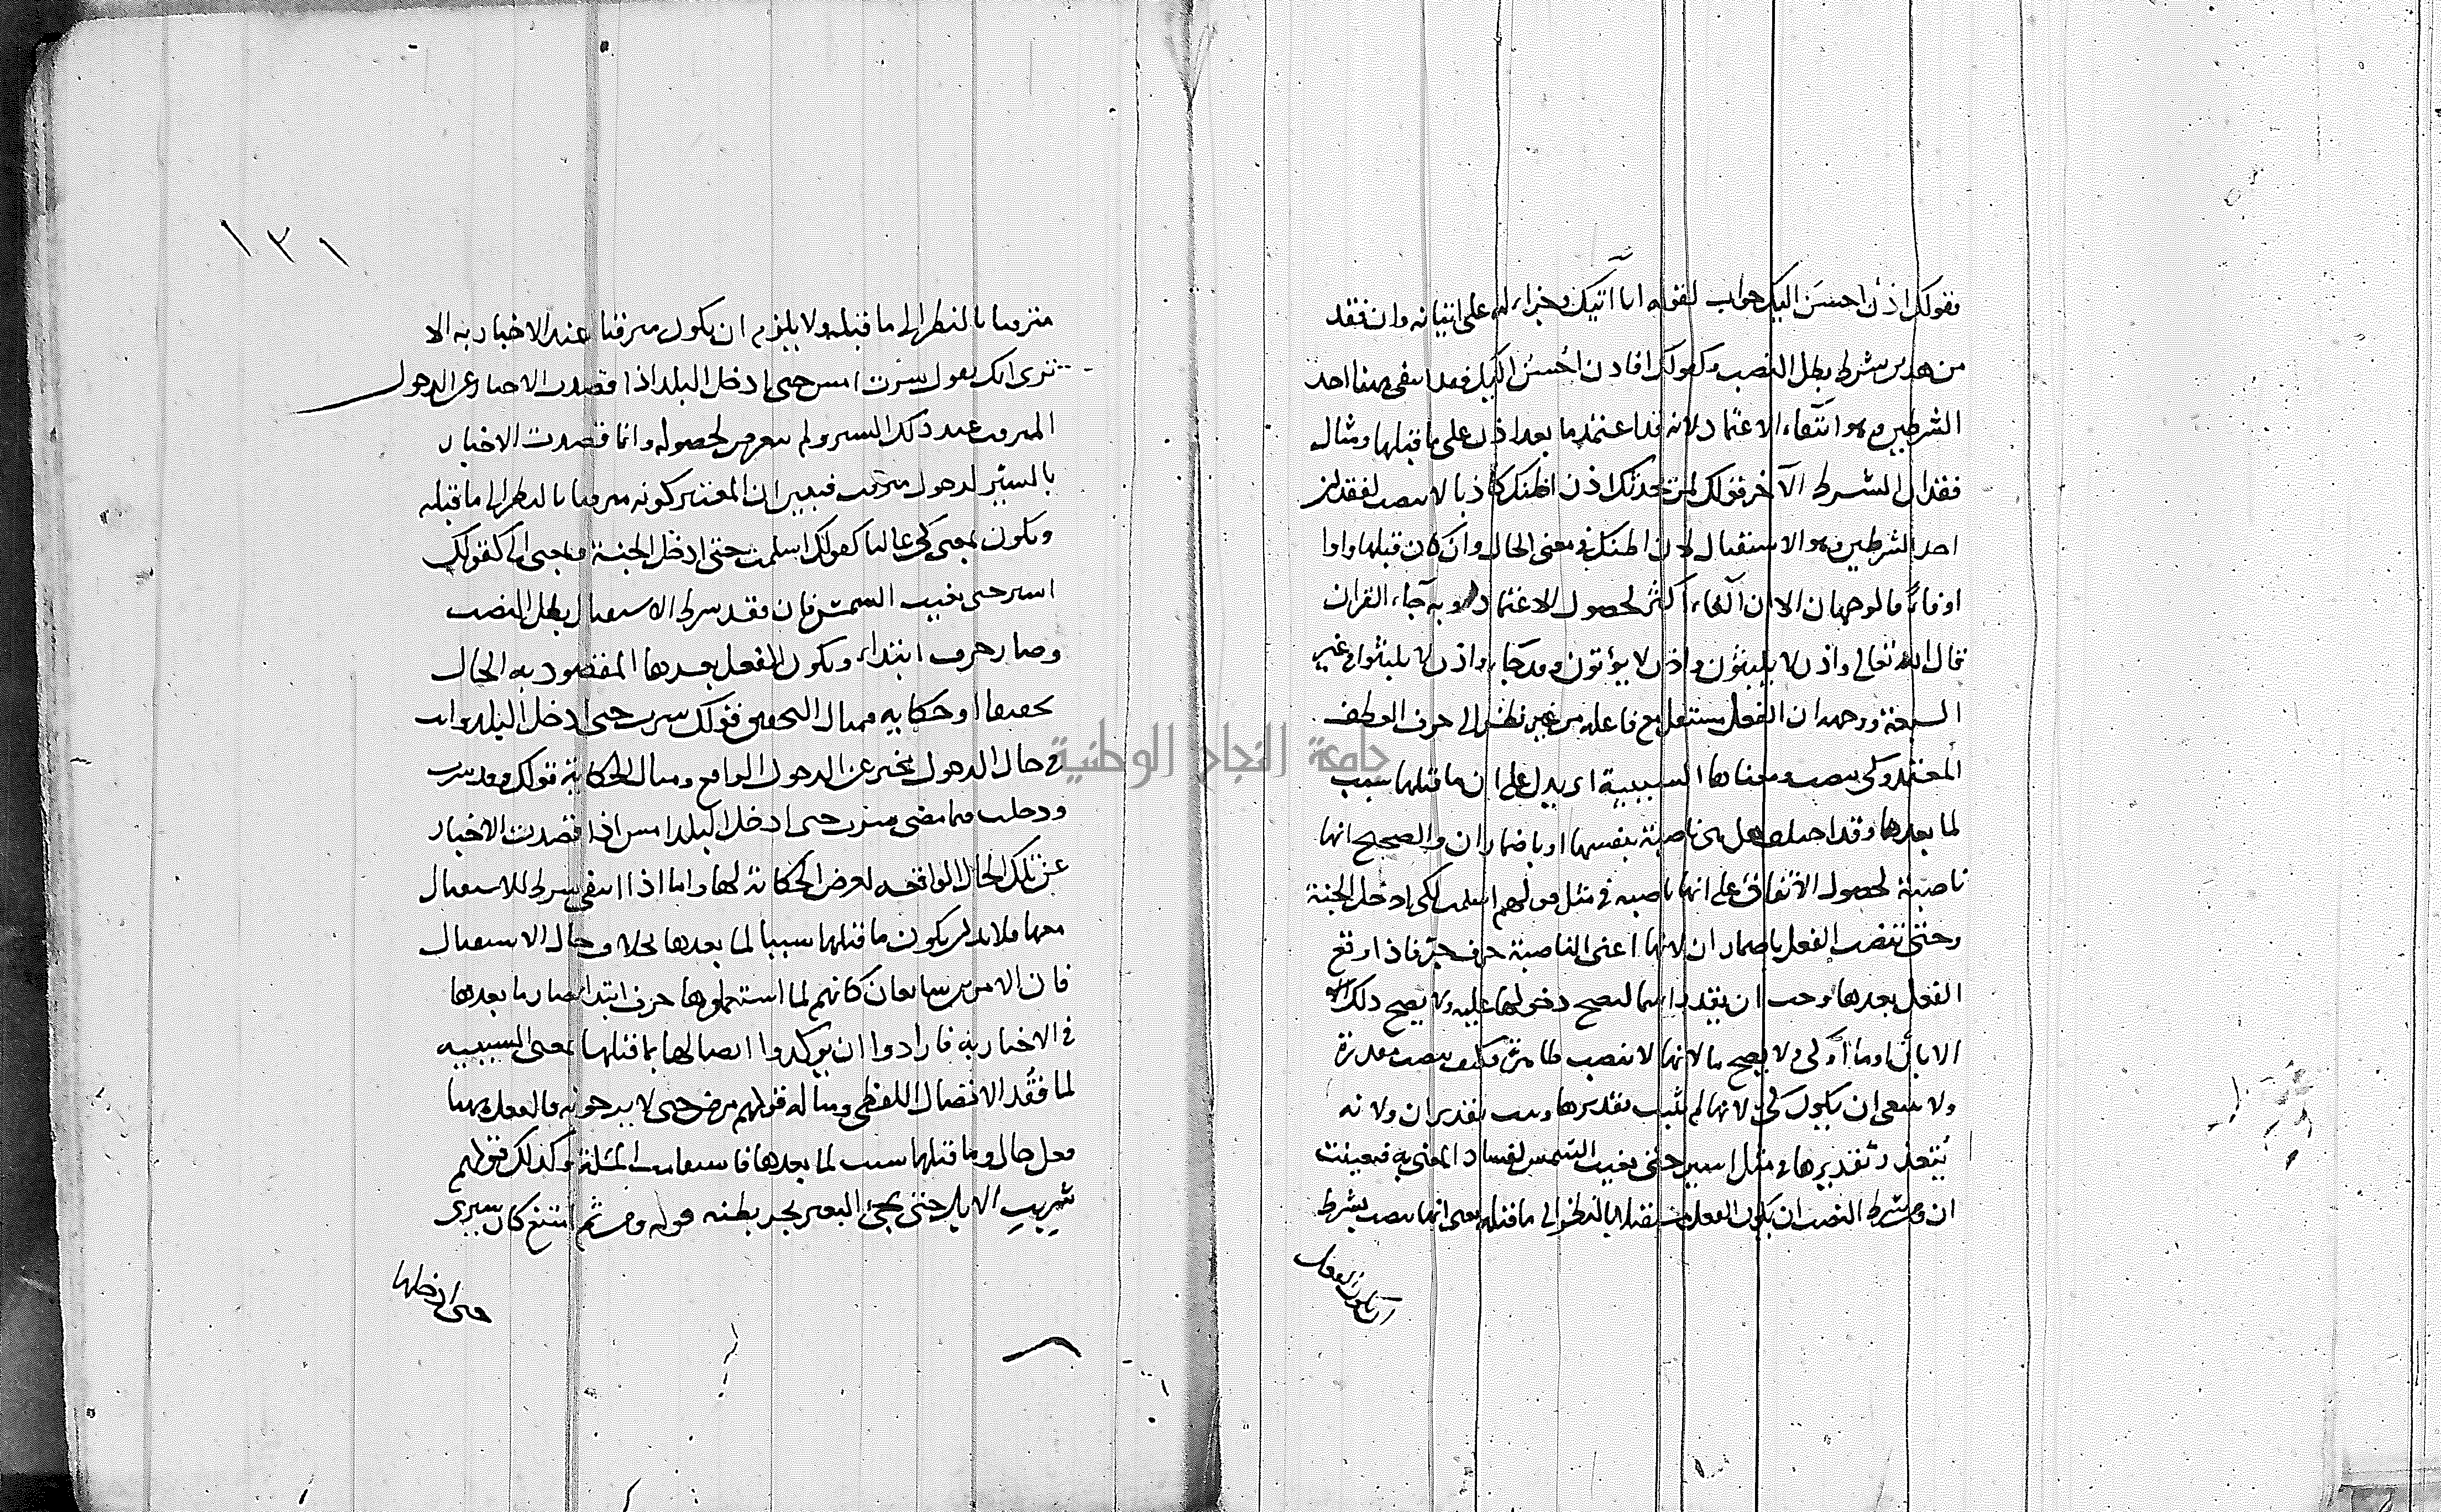 فقولك اذن احسن اليك جواب لقوله انا آتيك وجزاء له على اتيانه وان فقد
من هدين شرط بطل النصب وكقولك انا اذن احسن اليك فقد انتفى ههنا احد
الشرطين وهو انتفاء الاعتماد لانه قد اعتمد ما بعد اذن على ما قبلها ومثال
فقدان الشرط الآخر قولك لمن تحدثك اذن اظنك كاذبا لا ينصب لفقد
احد الشرطين وهو الاستقبال لان اظنك في معنى الحال وان كان قبلها واوا
او فاء فالوجهان الا ان الغاء اكثر لحصول الاعتماد وبه جاء القران
قال الله تعالى واذن لا يلبثون واذن لا يؤتون وقد جاء واذن لا يلبثوا في غير
السبعة ووجهه ان الفعل مستقل مع فاعله من غير نظر الى حرف العطف
المعتمد وكي ينصب ومعناها السببية اي يدل على ان ما قبلها سبب
لما بعدها وقد اختلف هل هي ناصبة بنفسها او باضمار ان والصحيح انها
ناصبة لحصول الاتفاق على انها ناصبه في مثل قولهم اسلمت لكي ادخل الجنة
وحتى تنصب الفعل باضمار ان لانها اعني الناصبة حرف جر فاذا وقع
الفعل بعدها وجب ان يقدر اسما ليصح دخولها عليه ولا يصح ذلك
الا بان او ما او كي ولا يصح ما لانها لا تنصب ظاهرة فكيف ينصب مقدرة
ولا ينبغي ان يكون كي لانها لم يثبت تقديرها وثبت تقدير ان ولانه
يتعذر تقديرها في مثل اسير حتى تغيب الشمس لفساد المعنى به فتعينت
ان وشرط النصب ان يكون الفعل مستقبلا بالنظر الى ما قبله يعني انها ينصب بشرط
ان يكون الفعل
١٣١
مترقبا بالنظر الى ما قبله ولا يلزم ان يكون مترقبا عند الاخبار به الا
ترى انك تقول سرت امس حتى ادخل البلد اذا قصدت الاخبار عن الدخول
المترقب عند ذلك السير ولم تتعرض لحصوله وانما قصدت الاخبار
بالسير لدخول مترقب فتبين ان المعتبر كونه مترقبا بالنظر الى ما قبله
ويكون بمعنى كي غالبا كقولك اسلمت حتى ادخل الجنة وبمعنى الى كقولك
اسير حتى تغيب الشمس فان فقد شرط الاستقبال بطل النصب
وصار حرف ابتداء ويكون الفعل بعدها المقصود به الحال
تحقيقا او حكايه فمثال التحقيق قولك سرت حتى ادخل البلد وانت
في حال الدخول تخبر عن الدخول الواقع ومثال الحكاية قولك وقد سرت
ودخلت فيما مضى سرت حتى ادخل البلد امس اذا قصدت الاخبار
عن تلك الحال الواقعه لغرض الحكاية لها واما اذا انتفى شرط الاستقبال
معها فلا بد ان يكون ما قبلها سببا لما بعدها بخلاف حال الاستقبال
فان الامرين سايغان كانهم لما استعملوها حرف ابتداء صار ما بعدها
في الاخبار به فارادوا ان يوكدوا اتصالها بما قبلها بمعنى السببيه
لما فقد الاتصال اللفظي ومثاله قولهم مرض حتى لا يرجونه فالفعل ههنا
فعل حال وما قبلها سبب لما بعدها فاستقامت المسئلة وكذلك قولهم
شربت الابل حتى يجئ البعير يجر بطنه قوله ومن ثم امتنع كان سيرى
حتى ادخلها
جامعة النجاح الوطنية